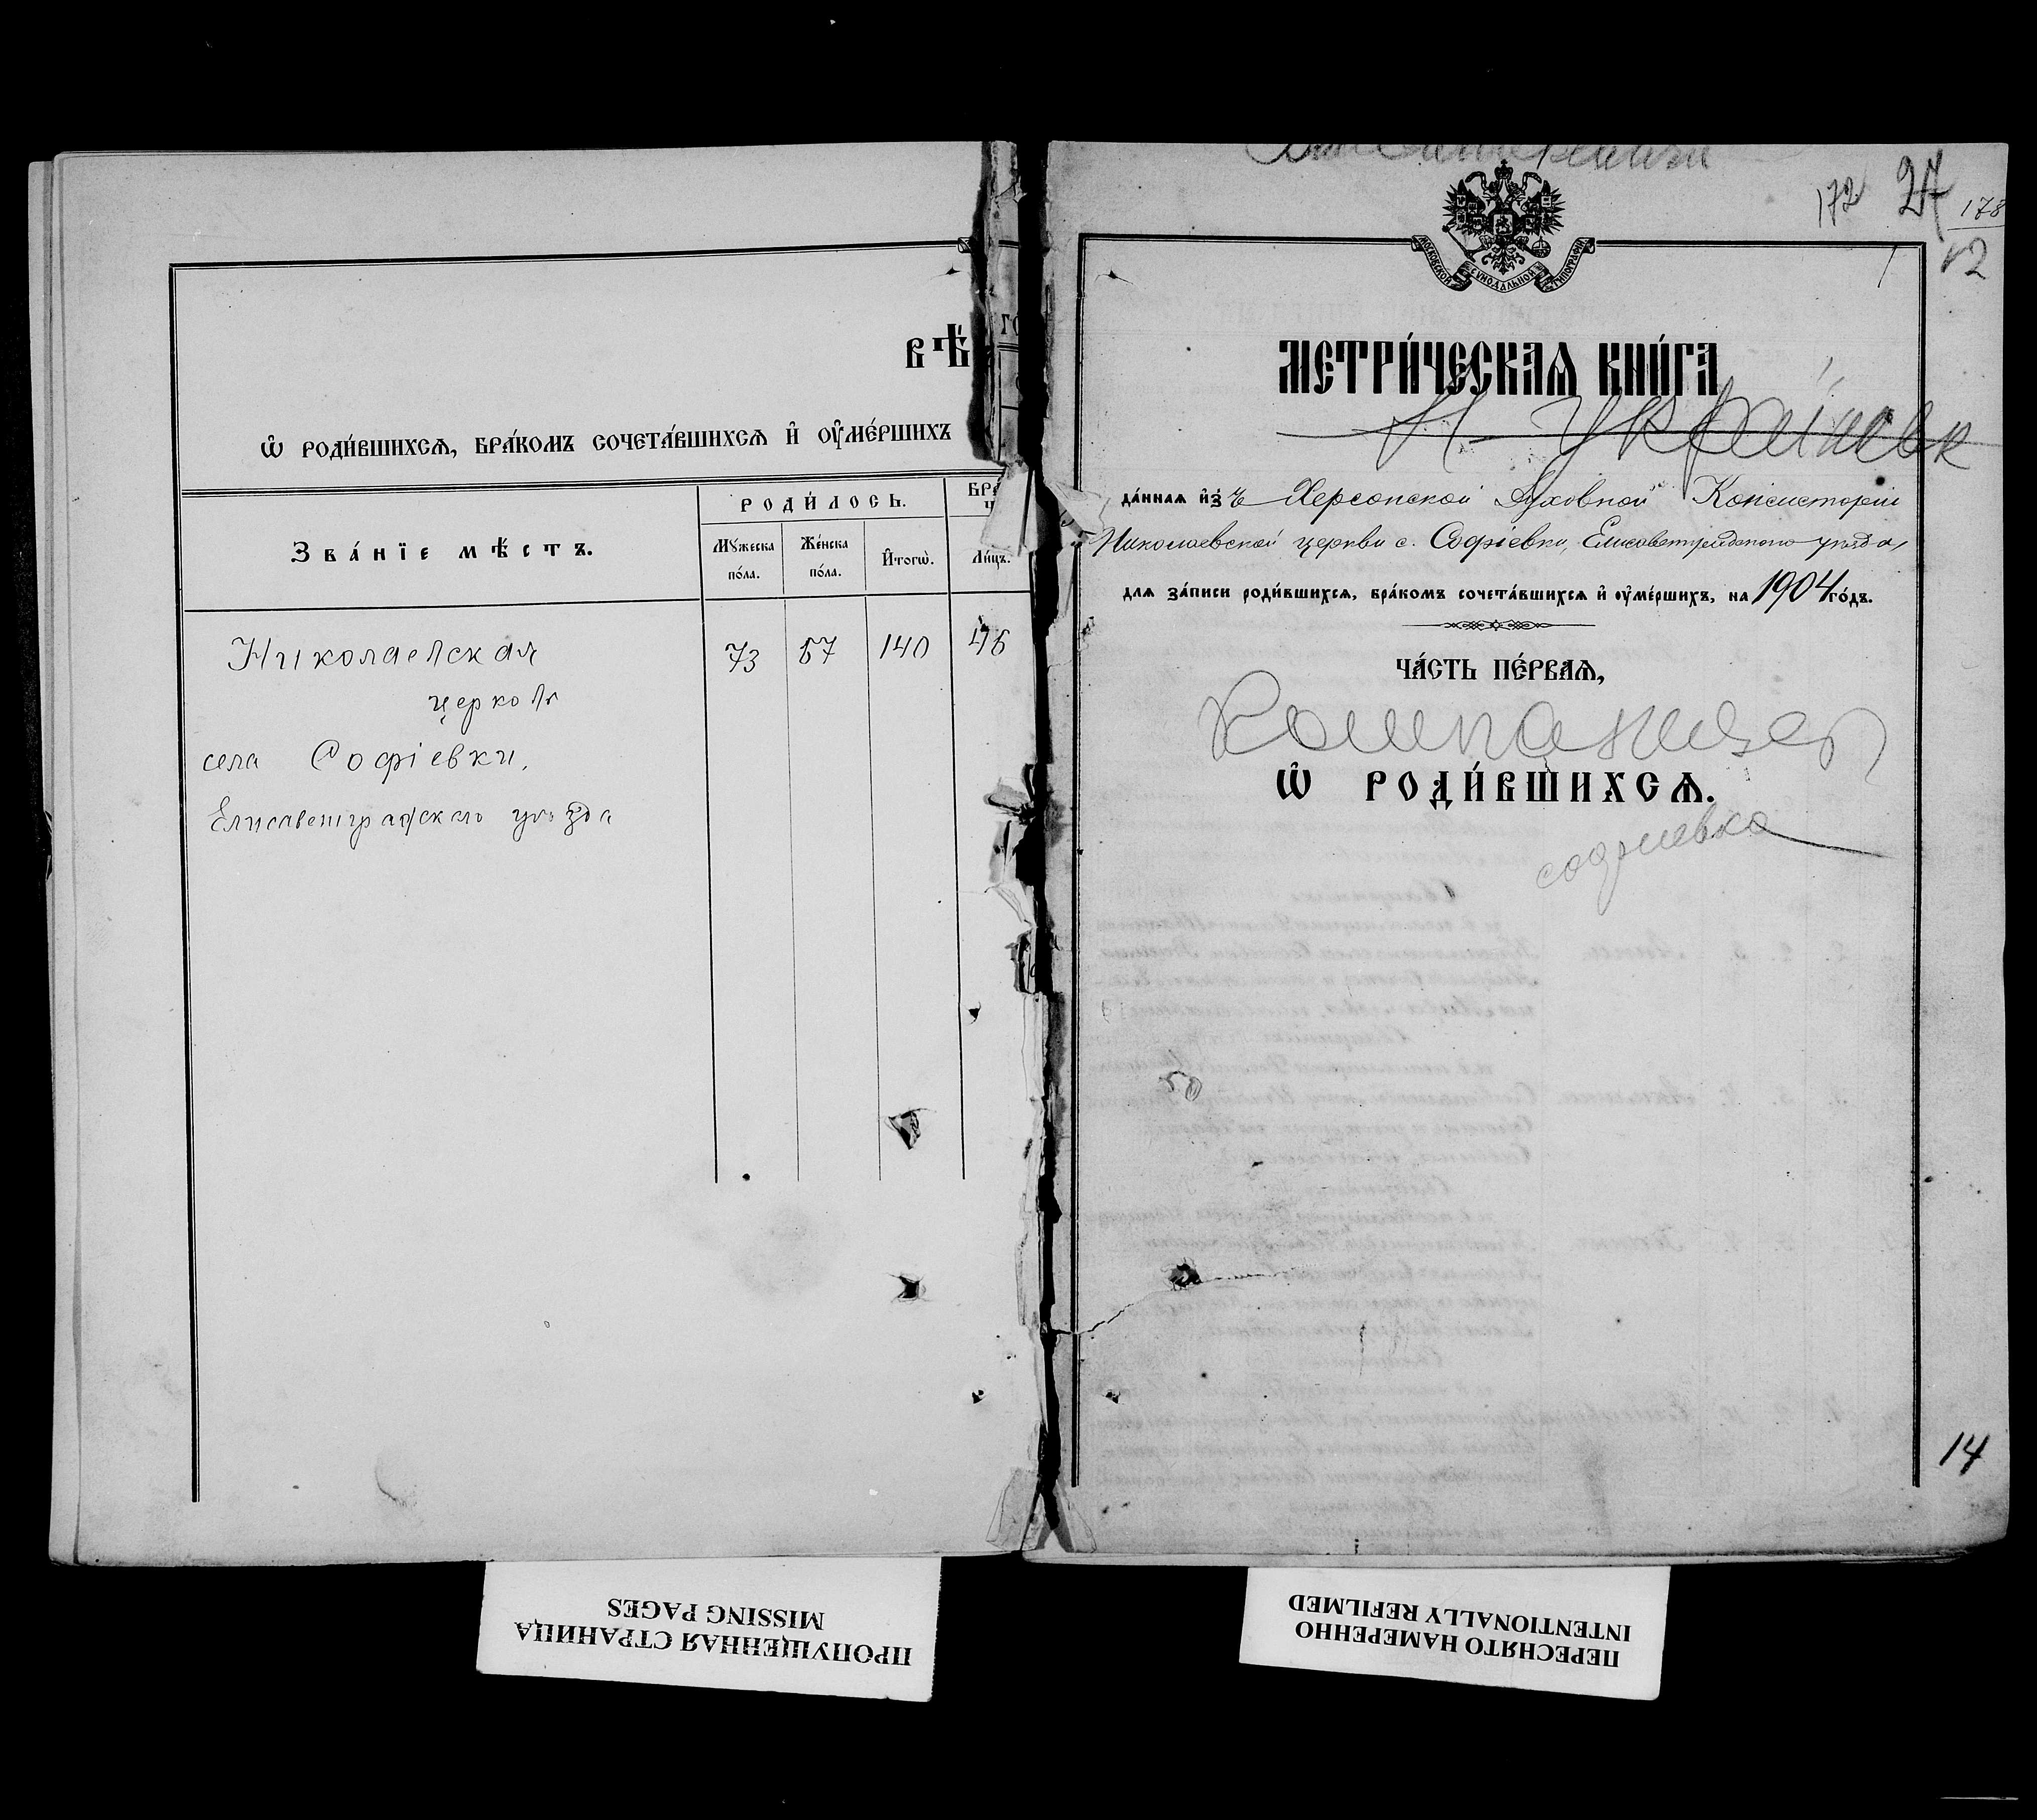 ВѢ
Ѡ҆ РОДИ́ВШИХСѦ, БРА́КОМЪ СОЧЕТА́ВШИХСѦ И҆ ОУ҆МЕ́РШИХЪ
Зва́нїе мѣ́стъ.
РОДИ́ЛОСЬ.
БРА
Мꙋжеска по́ла.
Же́нска по́ла.
И҆тогѡ̀.
Ли́цъ.
Николаевская 73 67 140 46
церковь
села Софіевки,
Елисаветградскаго уѣзда
172 27 178
12
МОСКОВСКОЙ СѴНОДАЛЬНОЙ ТИПОГРАФІИ
МЕТРИ́ЧЕСКАѦ КНИ́ГА
Н-Украинск
да́нная и҆зъ Херсонской Духовной Консисторіи
Николаевской церкви с. Софіевки, Елисаветградскаго уѣзда,
для за́писи роди́вшихсѧ, бра́комъ сочета́вшихсѧ и҆ оу҆ме́ршихъ, на 1904 го́дъ.
ЧА́СТЬ ПЕ́РВАѦ,
Компаниев
Ѡ҆ РОДИ́ВШИХСѦ.
софиевка
14
ПРОПУЩЕННАЯ СТРАНИЦА
MISSING PAGES
ПЕРЕСНЯТО НАМЕРЕННО
INTENTIONALLY REFILMED